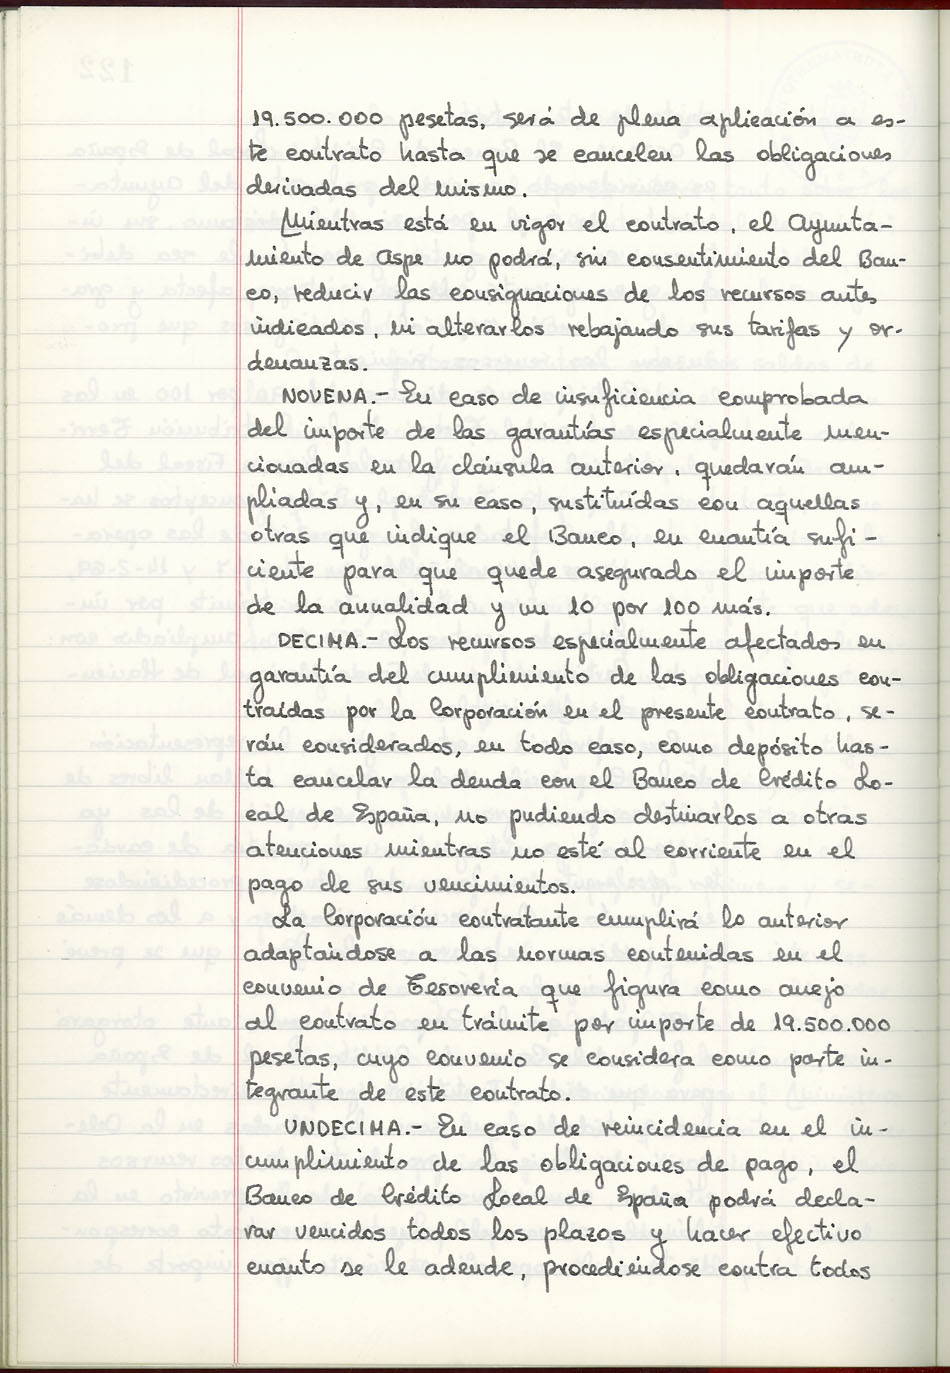 19.500.000 pesetas, será de plena aplicación a es-
te contrato hasta que se cancelen las obligaciones
derivadas del mismo.
Mientras está en vigor el contrato, el Ayunta-
miento de Aspe no podrá, sin consentimiento del Ban-
co, reducir las consignaciones de los recursos antes
indicados, ni alterarlos rebajando sus tarifas y or-
denanzas.
NOVENA.- En caso de insuficiencia comprobada
del importe de las garantías especialmente men-
cionadas en la cláusula anterior, quedarán am-
pliadas y, en su caso, sustituídas con aquellas
otras que indique el Banco, en cuantía sufi-
ciente para que quede asegurado el importe
de la anualidad y un 10 por 100 más.
DECIMA.- Los recursos especialmente afectados en
garantía del cumplimiento de las obligaciones con-
traídas por la Corporación en el presente contrato, se-
rán considerados, en todo caso, como depósito has-
ta cancelar la deuda con el Banco de Crédito Lo-
cal de España, no pudiendo destinarlos a otras
atenciones mientras no esté al corriente en el
pago de sus vencimientos.
La Corporación contratante cumplirá lo anterior
adaptándose a las normas contenidas en el
convenio de Tesorería que figura como anejo
al contrato en trámite por importe de 19.500.000
pesetas, cuyo convenio se considera como parte in-
tegrante de este contrato.
UNDECIMA.- En caso de reincidencia en el in-
cumplimiento de las obligaciones de pago, el
Banco de Crédito Local de España podrá decla-
rar vencidos todos los plazos y hacer efectivo
cuanto se le adeude, procediéndose contra todos